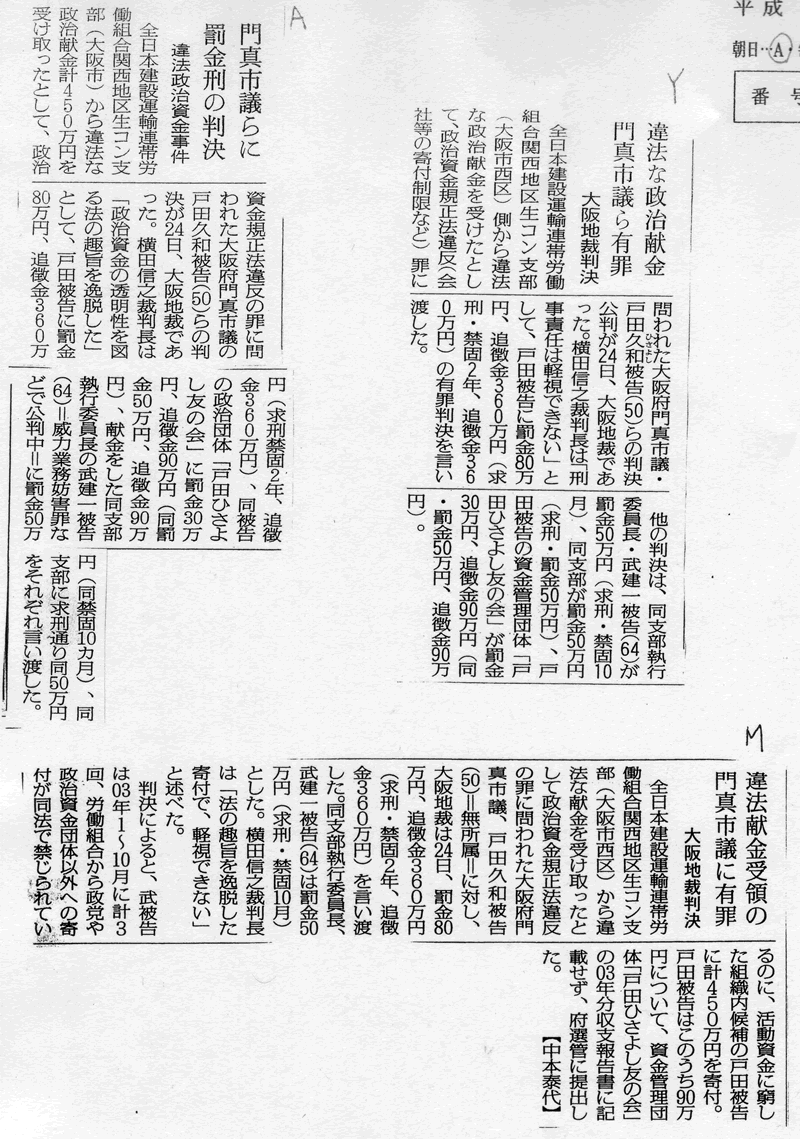 平成
朝日…A・
番号
A
門真市議らに
罰金刑の判決
違法政治資金事件
全日本建設運輸連帯労
働組合関西地区生コン支
部（大阪市）から違法な
政治献金計450万円を
受け取ったとして、政治
資金規正法違反の罪に問
われた大阪府門真市議の
戸田久和被告(50)らの判
決が24日、大阪地裁であ
った。横田信之裁判長は
「政治資金の透明性を図
る法の趣旨を逸脱した」
として、戸田被告に罰金
80万円、追徴金360万
円（求刑禁固2年、追徴
金360万円）、同被告
の政治団体「戸田ひさよ
し友の会」に罰金30万
円、追徴金90万円（同罰
金50万円、追徴金90万
円）、献金をした同支部
執行委員長の武建一被告
(64)＝威力業務妨害罪な
どで公判中＝に罰金50万
円（同禁固10カ月）、同
支部に求刑通り同50万円
をそれぞれ言い渡した。
Y
違法な政治献金
門真市議ら有罪
大阪地裁判決
全日本建設運輸連帯労働
組合関西地区生コン支部
（大阪市西区）側から違法
な政治献金を受けたとし
て、政治資金規正法違反（会
社等の寄付制限など）罪に
問われた大阪府門真市議・
戸田久和被告(50)らの判決
ひさよし
公判が24日、大阪地裁であ
った。横田信之裁判長は「刑
事責任は軽視できない」と
して、戸田被告に罰金80万
円、追徴金360万円（求
刑・禁固2年、追徴金36
0万円）の有罪判決を言い
渡した。
他の判決は、同支部執行
委員長・武建一被告(64)が
罰金50万円（求刑・禁固10
月）、同支部が罰金50万円
（求刑・罰金50万円）、戸
田被告の資金管理団体「戸
田ひさよし友の会」が罰金
30万円、追徴金90万円（同
・罰金50万円、追徴金90万
円）。
M
違法献金受領の
門真市議に有罪
大阪地裁判決
全日本建設運輸連帯労
働組合関西地区生コン支
部（大阪市西区）から違
法な献金を受け取ったと
して政治資金規正法違反
の罪に問われた大阪府門
真市議、戸田久和被告
(50)＝無所属＝に対し、
大阪地裁は24日、罰金80
万円、追徴金360万円
（求刑・禁固2年、追徴
金360万円）を言い渡
した。同支部執行委員長、
武建一被告(64)は罰金50
万円（求刑・禁固10月）
とした。横田信之裁判長
は「法の趣旨を逸脱した
寄付で、軽視できない」
と述べた。
判決によると、武被告
は03年1～10月に計3
回、労働組合から政党や
政治資金団体以外への寄
付が同法で禁じられてい
るのに、活動資金に窮し
た組織内候補の戸田被告
に計450万円を寄付。
戸田被告はこのうち90万
円について、資金管理団
体「戸田ひさよし友の会」
の03年分収支報告書に記
載せず、府選管に提出し
た。
【中本泰代】